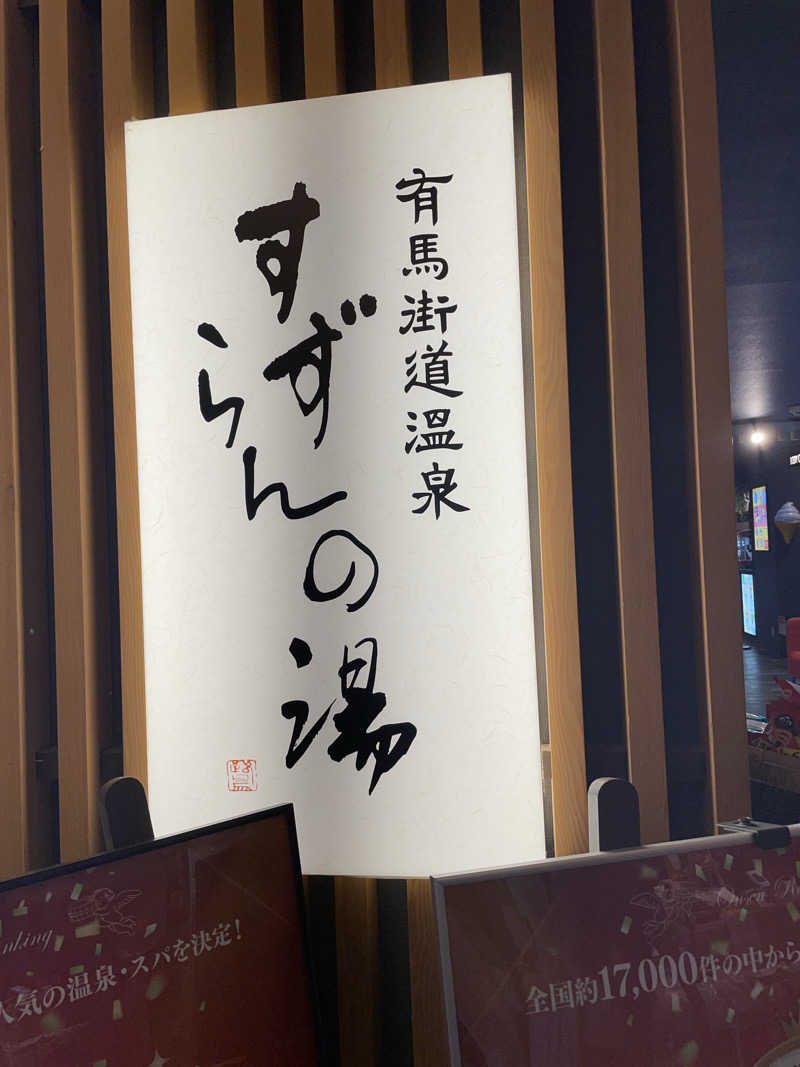 有馬街道温泉
すずらんの湯
人気の温泉・スパを決定!
全国約17,000件の中から